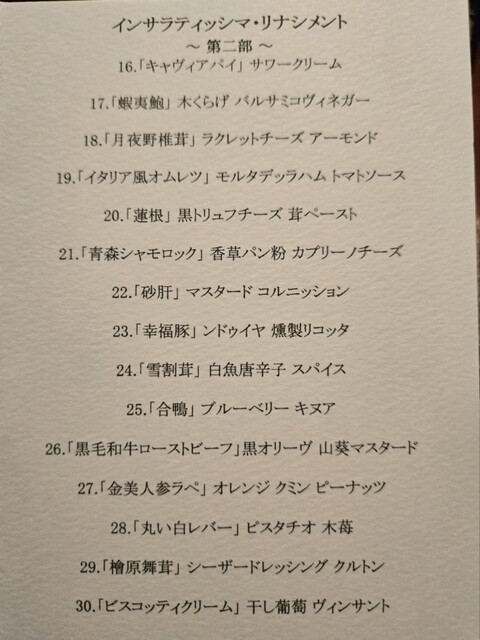 インサラティッシマ・リナシメント
～ 第二部 ～
16.「キャヴィアパイ」 サワークリーム
17.「蝦夷鮑」 木くらげ バルサミコヴィネガー
18.「月夜野椎茸」 ラクレットチーズ アーモンド
19.「イタリア風オムレツ」 モルタデッラハム トマトソース
20.「蓮根」 黒トリュフチーズ 茸ペースト
21.「青森シャモロック」 香草パン粉 カプリーノチーズ
22.「砂肝」 マスタード コルニッション
23.「幸福豚」 ンドゥイヤ 燻製リコッタ
24.「雪割茸」 白魚唐辛子 スパイス
25.「合鴨」 ブルーベリー キヌア
26.「黒毛和牛ローストビーフ」黒オリーヴ 山葵マスタード
27.「金美人参ラペ」 オレンジ クミン ピーナッツ
28.「丸い白レバー」 ピスタチオ 木苺
29.「檜原舞茸」 シーザードレッシング クルトン
30.「ビスコッティクリーム」 干し葡萄 ヴィンサント